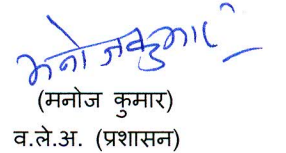 मनोजकुमार
(मनोज कुमार)
व.ले.अ. (प्रशासन)